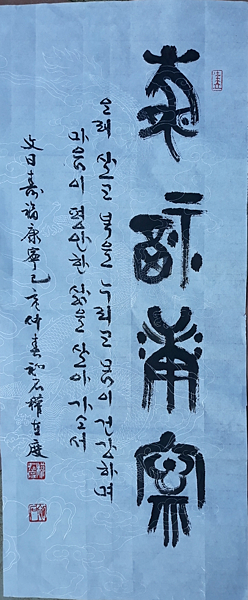 壽福康寧
오래 살고 복을 누리고 몸이 건강하며
마음이 평안한 삶을 살아 가소서
文曰壽福康寧己亥仲春